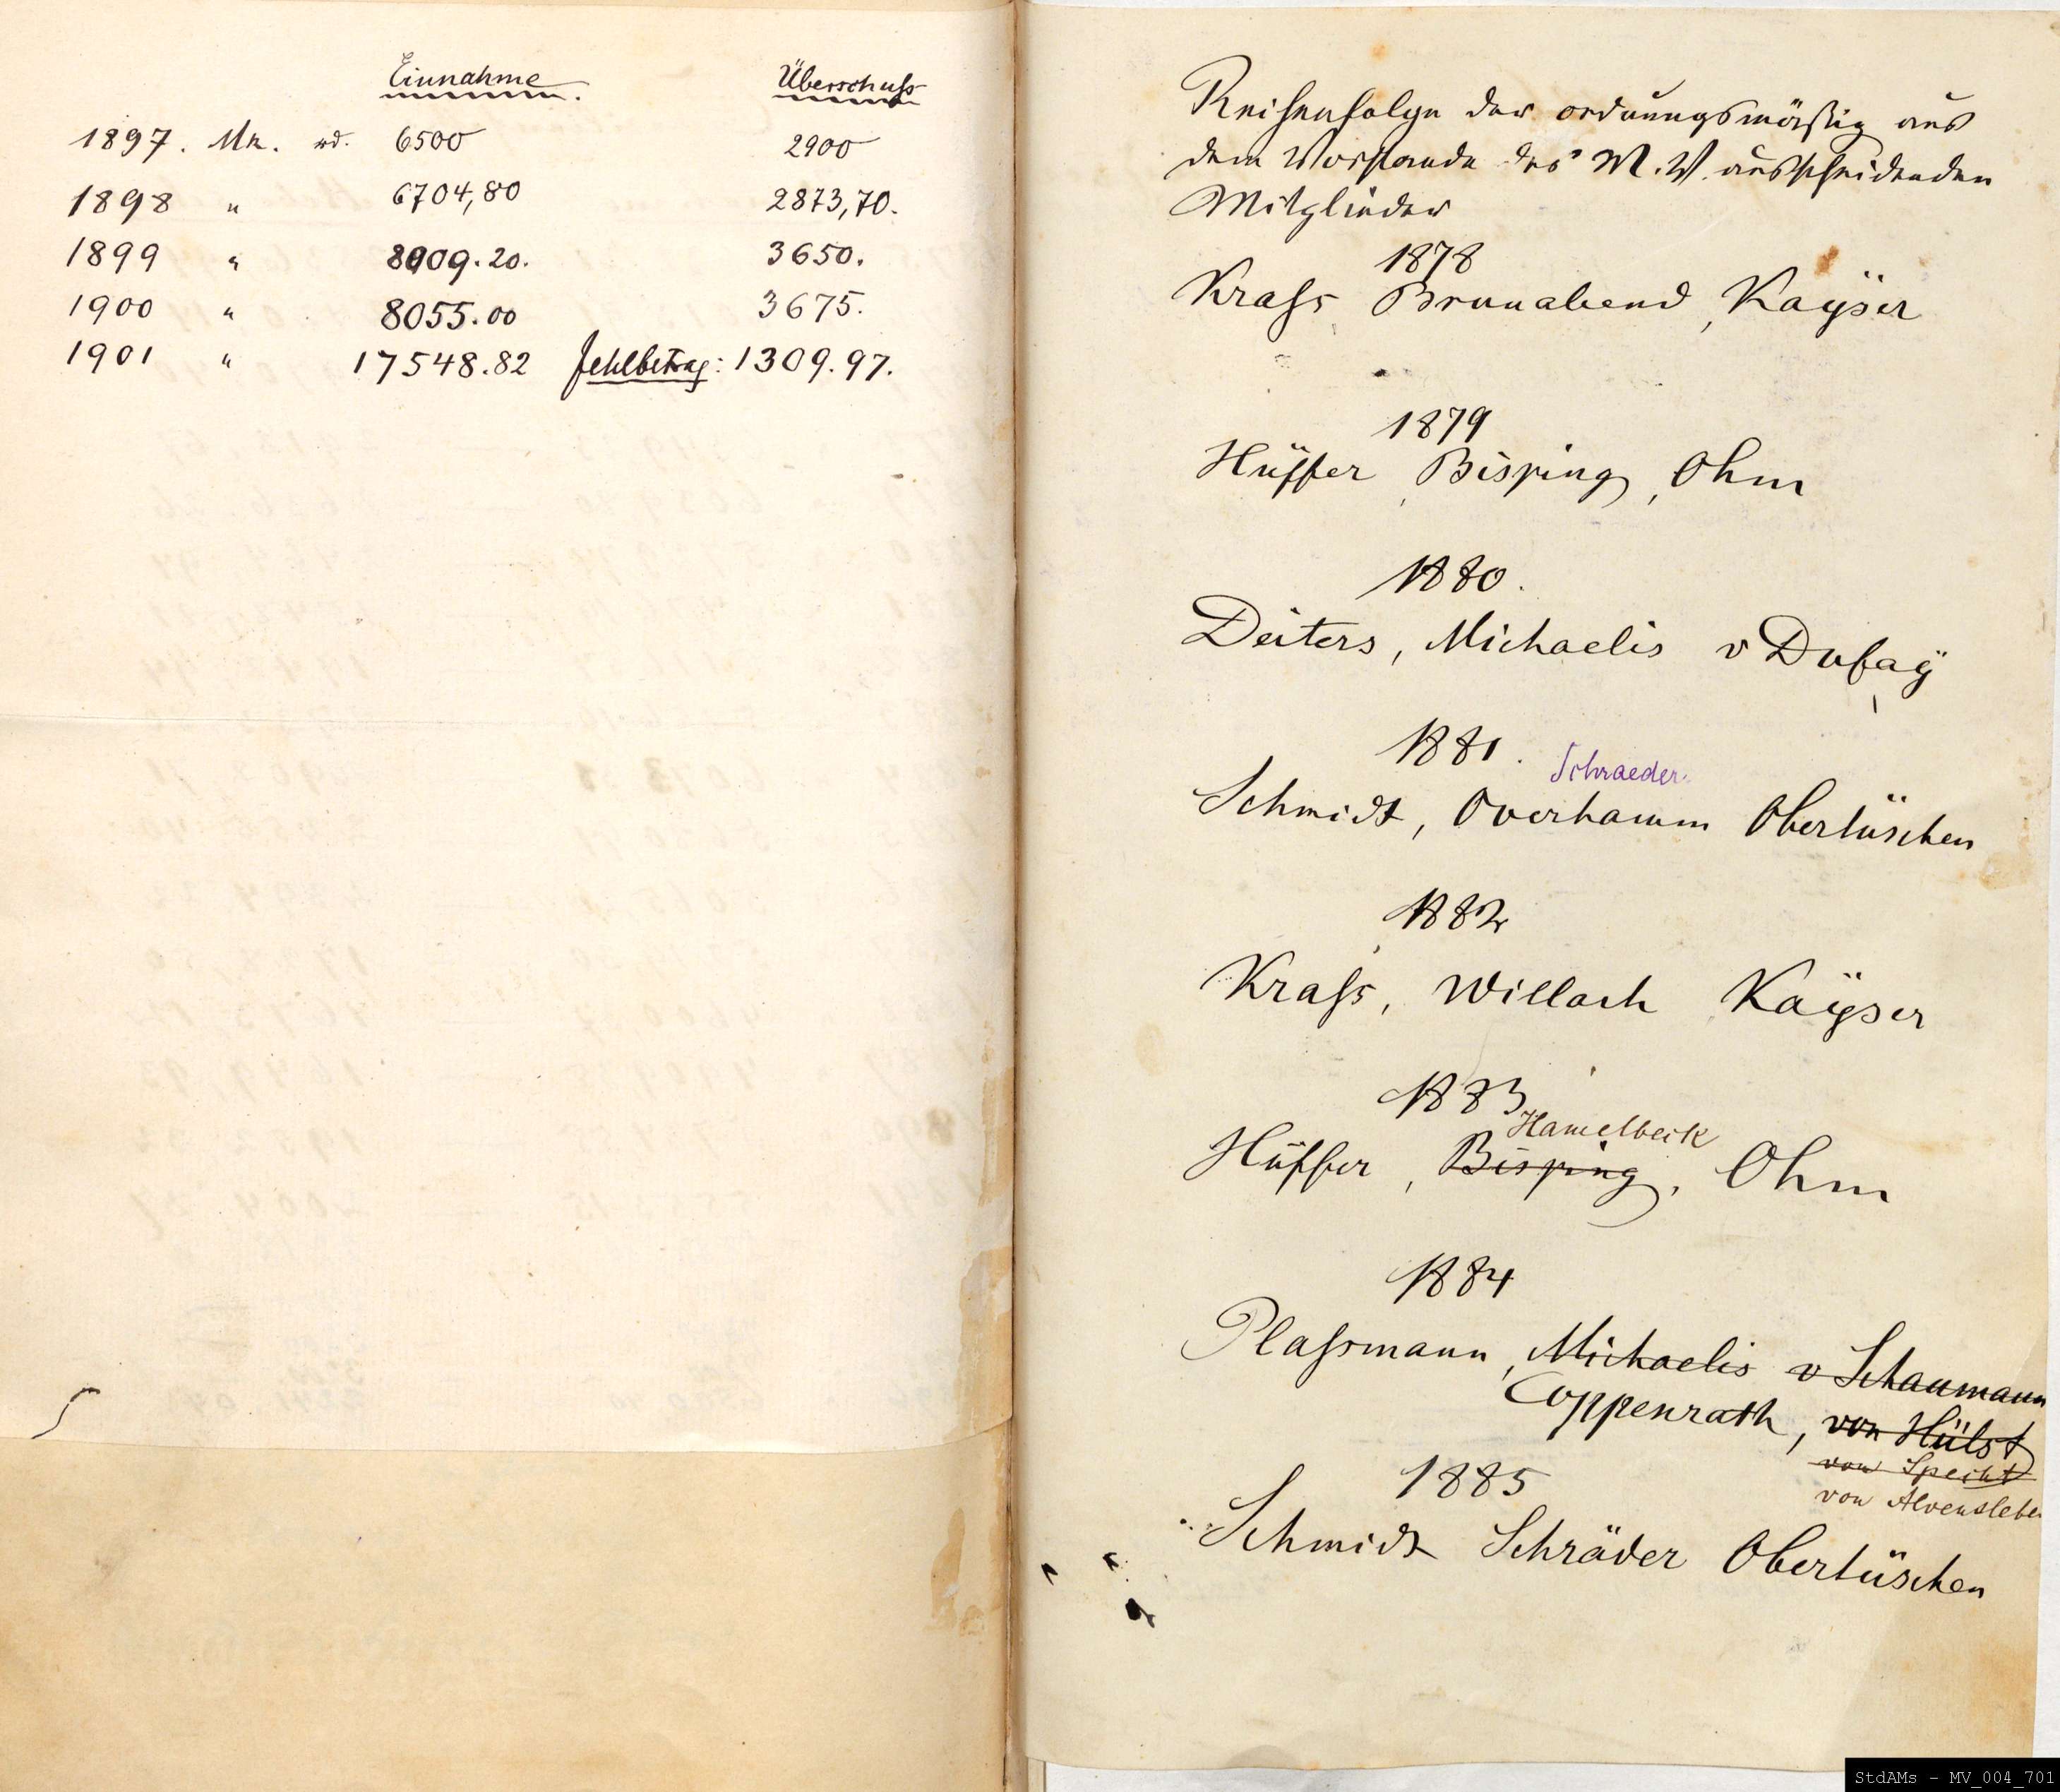 Einnahme. Überschuß
1897. Mk. rd. 6500 2900
1898 " 6704,80 2873,70.
1899 " 8009.20. 3650.
1900 " 8055.00 3675.
1901 " 17548.82 Fehlbetrag: 1309.97.
Reihenfolge der ordnungsmäßig aus
dem Vorstande des M.V. ausscheidenden
Mitglieder
1878
Kraß, Brunabend, Kaÿser
1879
Hüffer, Bisping, Ohm
1880.
Deiters, Michaelis v Dufaÿ
1881.
Schraeder.
Schmidt, Overhamm Obertüschen
1882
Kraß, Willach Kaÿser
1883
Hamelbeck
Hüffer, Bisping, Ohm
1884
Plaßmann, Michaelis v Schaumann
Coppenrath, von Hülst
von Specht
von Alvensleben
1885
Schmidt Schräder Obertüschen
StdAMs - MV_004_701